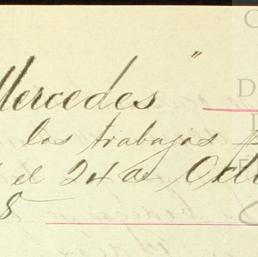 Mercedes"
los trabajos
el 24 de Oct
8